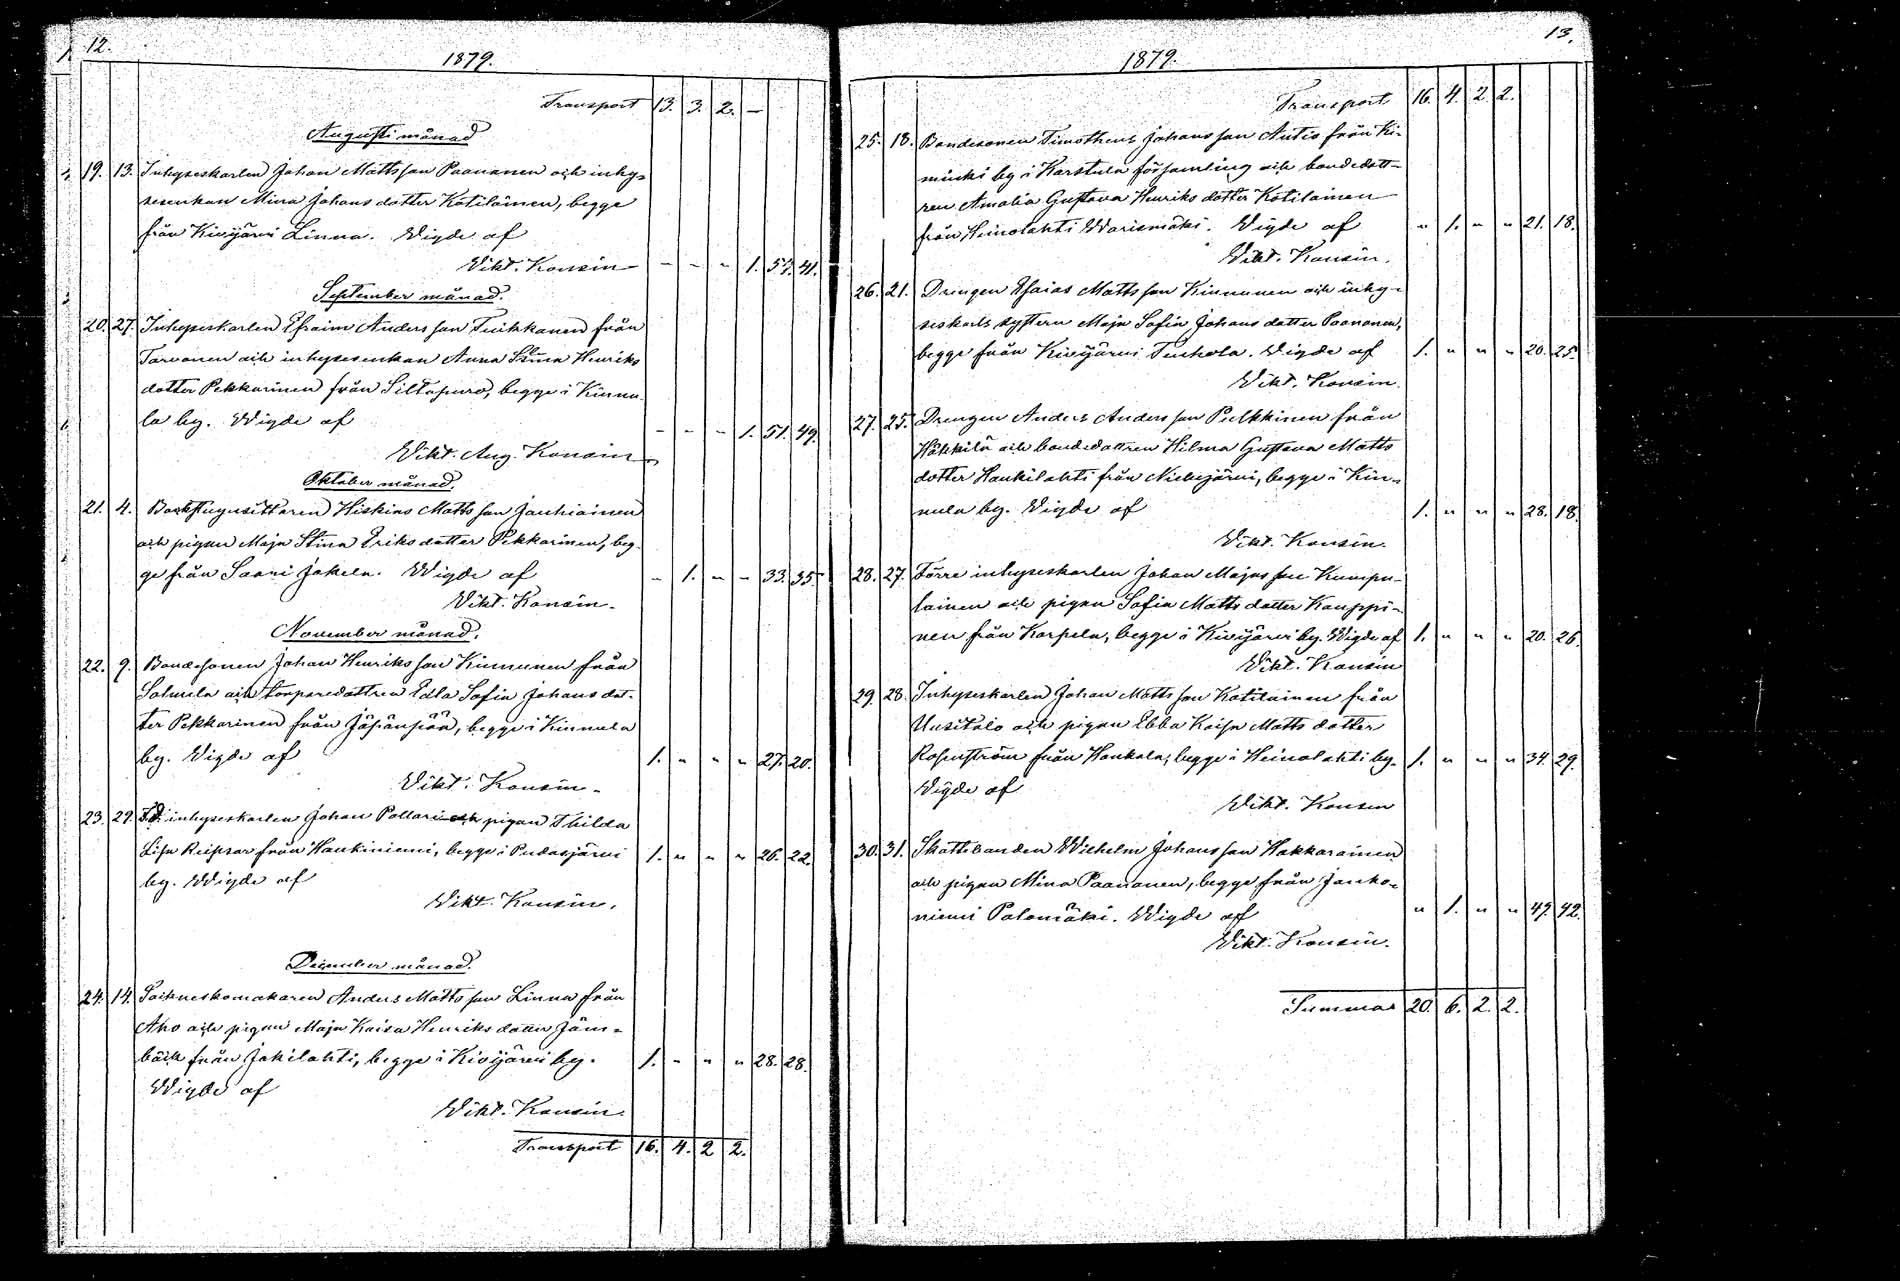 12.
1879.
Transport 13. 3. 2. –
Augusti månad
19. 13. Inhyseskarlen Johan Mattsson Paananen och inhy-
sesenkan Mina Johansdotter Kotilainen, begge
från Kivijärvi Linna. Wigde af
Vikt. Konsin – – – 1. 57. 41.
September månad.
20. 27. Inhyseskarlen Efraim Andersson Tuikkanen från
Tarvonen och inhysesenkan Anna Stina Henriks
dotter Pekkarinen från Siltapuro, begge i Kinnu-
la by. Wigde af – – – 1. 51. 49.
Vikt. Aug. Konsin
Oktober månad.
21. 4. Backstugusittaren Hiskias Mattsson Jauhiainen
och pigan Maja Stina Eriksdotter Pekkarinen, beg-
ge från Saari Jakela. Wigde af – 1. – – 33. 35.
Vikt. Konsin.
November månad.
22. 9. Bondesonen Johan Henriksson Kinnunen från
Salmela och torparedottren Edla Sofia Johansdot-
ter Pekkarinen från Jäpänpää, begge i Kinnula
by. Vigde af 1. " " " 27. 20.
Vikt. Konsin.
23. 29. inhyseskarlen Johan Pollari och pigan Thilda
Lisa Ruipsar från Haukiniemi, begge i Pudasjärvi 1. " " " 26. 22.
by. Wigde af
Vikt. Konsin.
December månad.
24. 14. Sockneskomakaren Anders Mattsson Linna från
Aho och pigan Maja Kaisa Henriksdotter Jäm-
bäck från Jokilahti, begge i Kivijärvi by. 1. " " " 28. 28.
Wigde af
Vikt. Konsin.
Transport 16. 4. 2 2.
13.
1879.
Transport 16. 4. 2. 2.
25. 18. Bondesonen Timotheus Johansson Autio från Ki-
minki by i Karstula församling och bondedott-
ren Amalia Gustava Henriksdotter Kotilainen
från Heinolahti Warismäki. Vigde af " 1. " " 21. 18.
Vikt. Konsin.
26. 21. Drengen Esaias Mattsson Kinnunen och inhy-
seskarls systern Maja Sofia Johansdotter Paananen,
begge från Kivijärvi Tenhola. Vigde af 1. " " " 20. 25.
Vikt. Konsin.
27. 25. Drengen Anders Andersson Pulkkinen från
Häkkilä och bondedottren Hilma Gustava Matts
dotter Haukilahti från Niemijärvi, begge i Kin-
nula by. Vigde af 1. " " " 28. 18.
Vikt. Konsin.
28. 27. Förre inhyseskarlen Johan Majasson Kumpu-
lainen och pigan Sofia Mattsdotter Kauppi-
nen från Korpela, begge i Kivijärvi by. Wigde af 1. " " " 20. 26.
Vikt. Konsin
29. 28. Inhyseskarlen Johan Mattsson Kotilainen från
Uusitalo och pigan Ebba Kaisa Mattsdotter
Rosenström från Hankala, begge i Heinolahti by. 1. " " " 34. 29.
Vigde af
Vikt. Konsin
30. 31. Skattebonden Wilhelm Johansson Hakkarainen
och pigan Mina Paananen, begge från Janho-
niemi Palomäki. Wigde af " 1. " " 47. 42.
Vikt. Konsin.
Summar 20. 6. 2. 2.